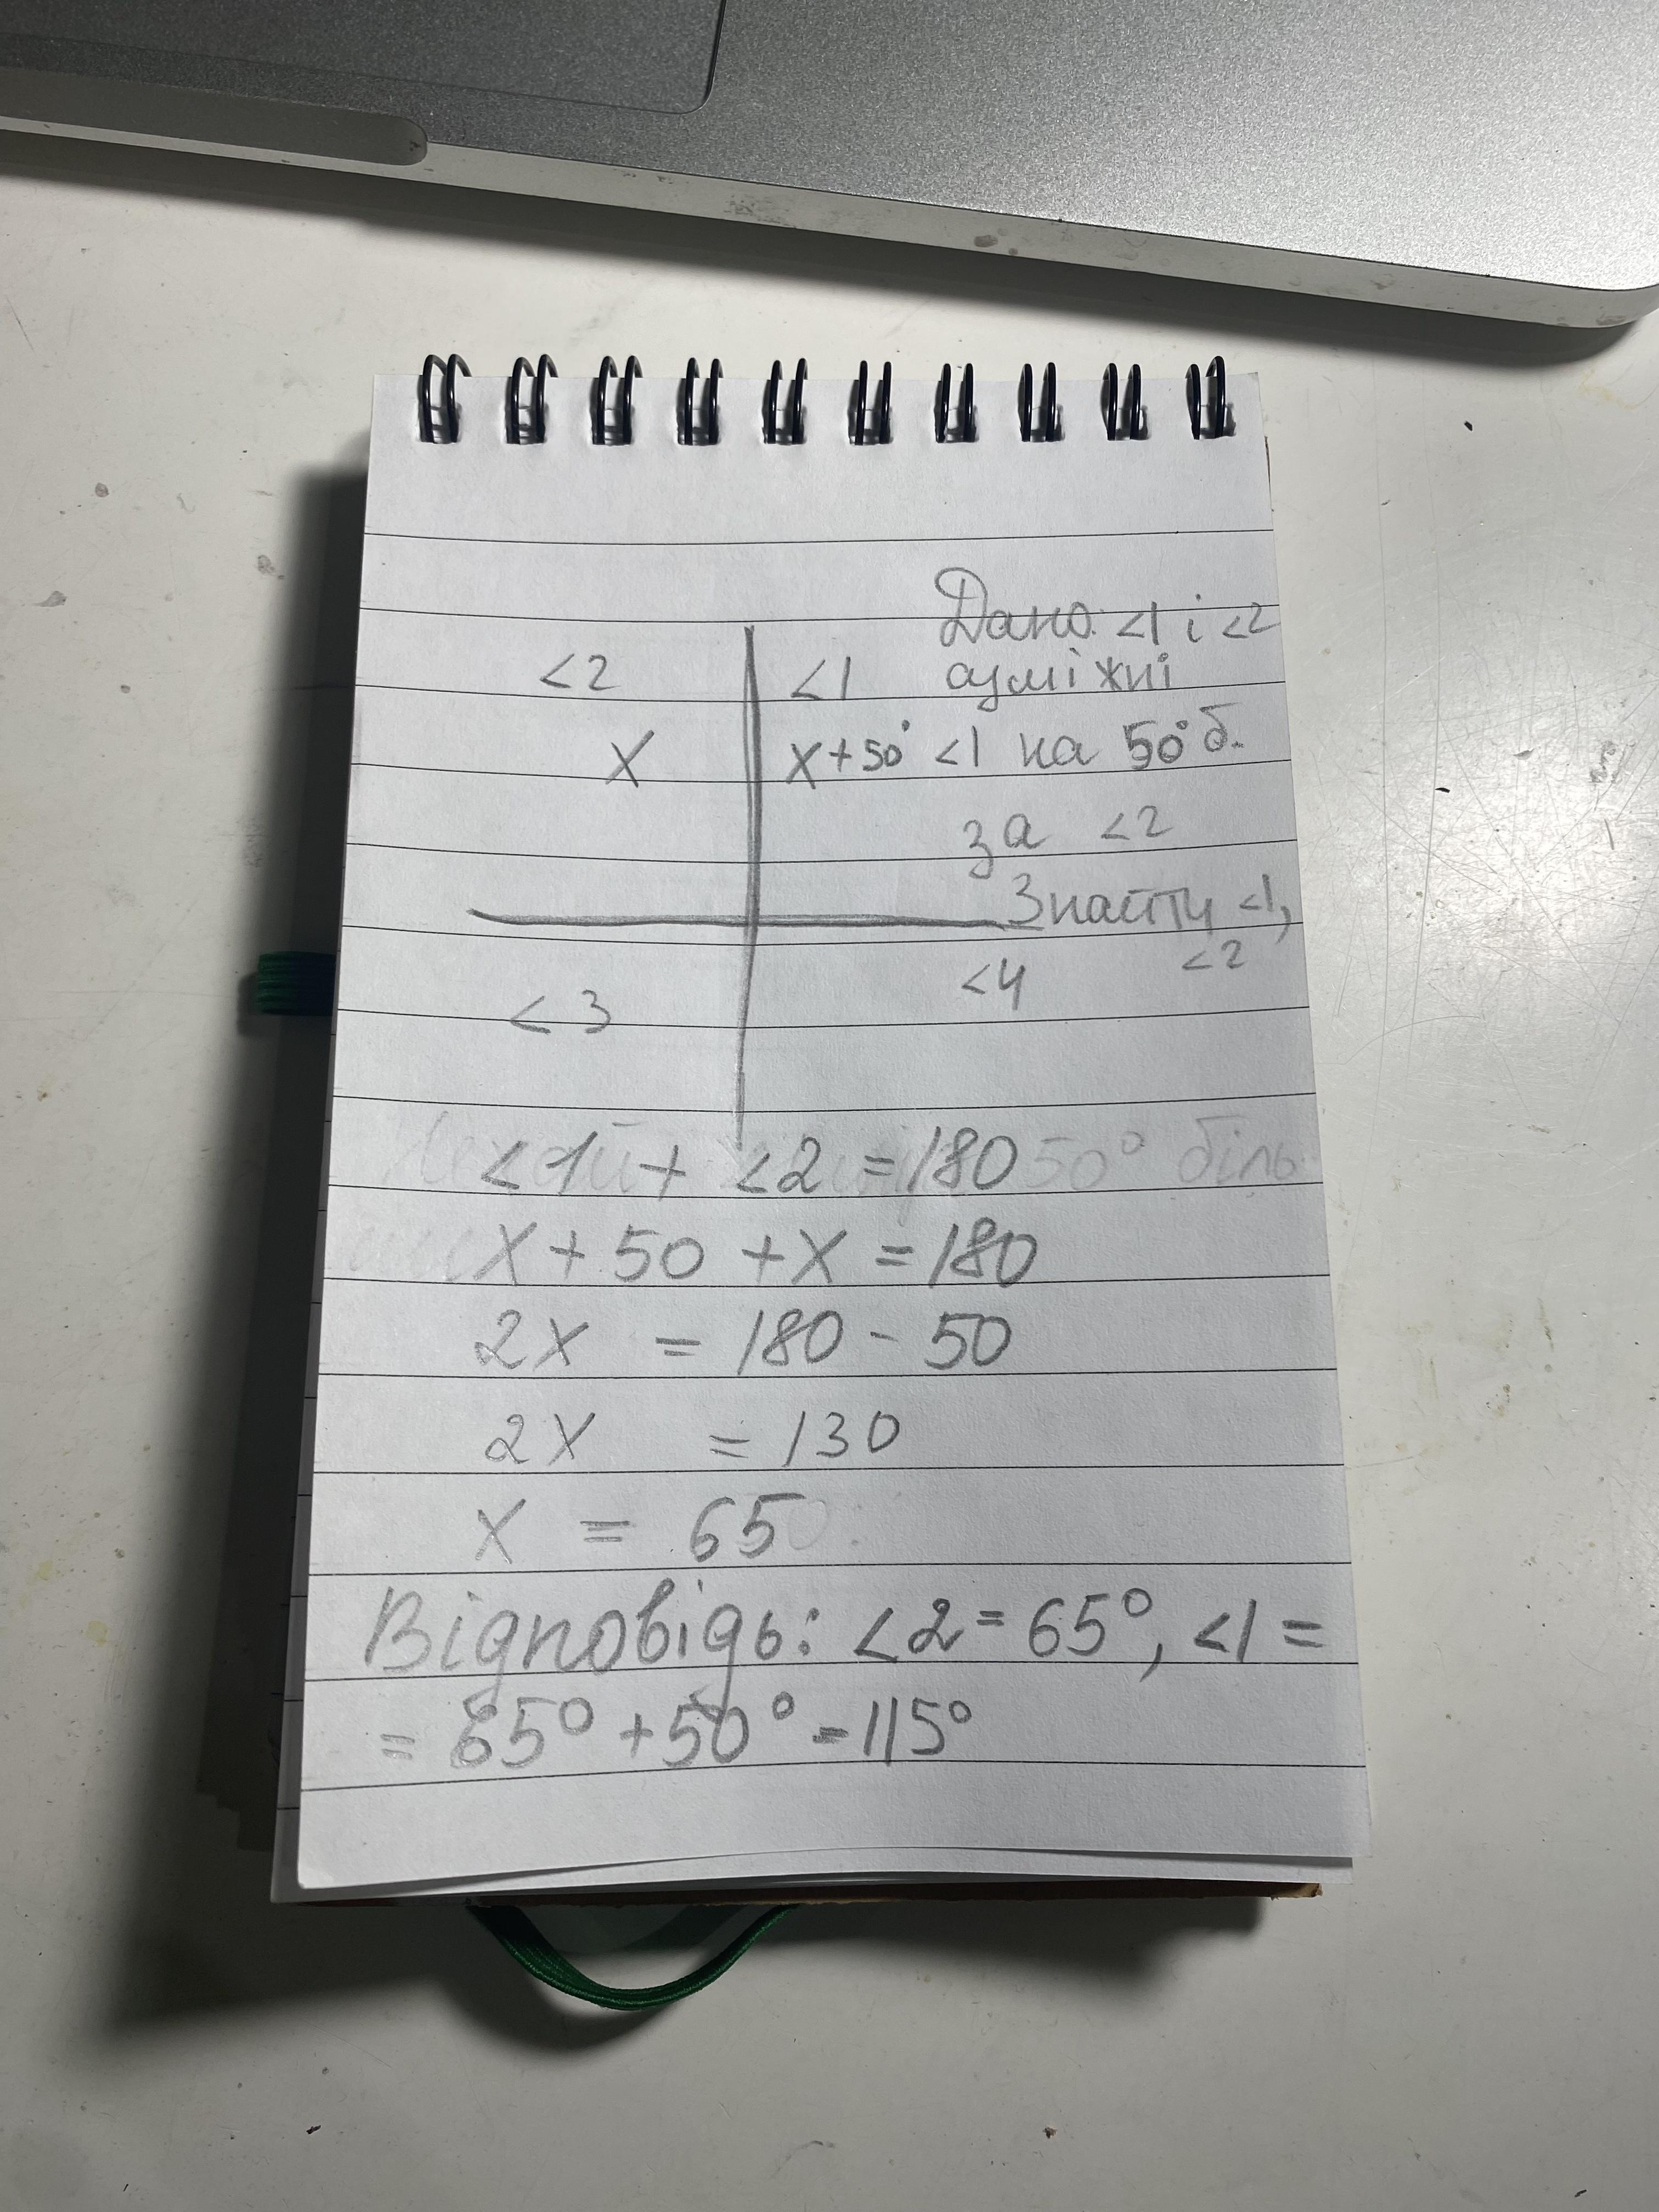 Дано: <1 і <2
суміжні
<2 <1
x x+50° <1 на 50° б.
за <2
Знайти <1,
<2
<3 <4
<1 + <2 = 180
50° біль
x + 50 + x = 180
2x = 180 - 50
2x = 130
x = 65
Відповідь: <2 = 65°, <1 =
= 65° + 50° = 115°